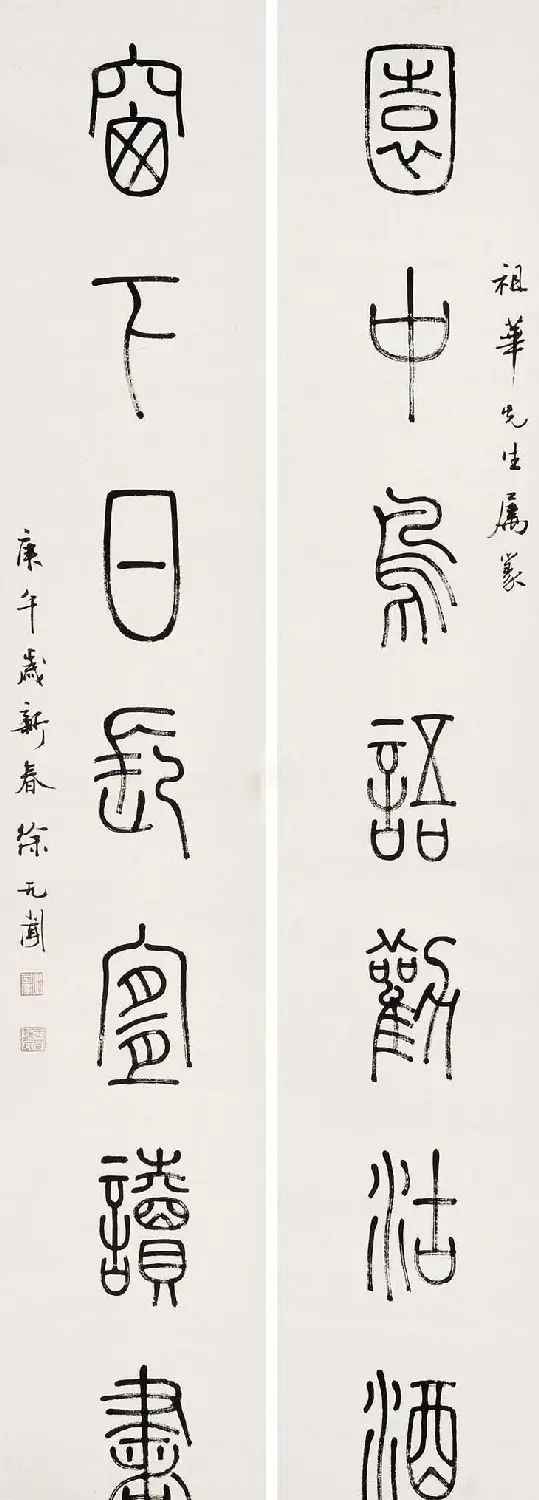 祖華先生屬篆
園中鳥語勸沽酒
窗下日長宜讀書
庚午歲新春徐无聞